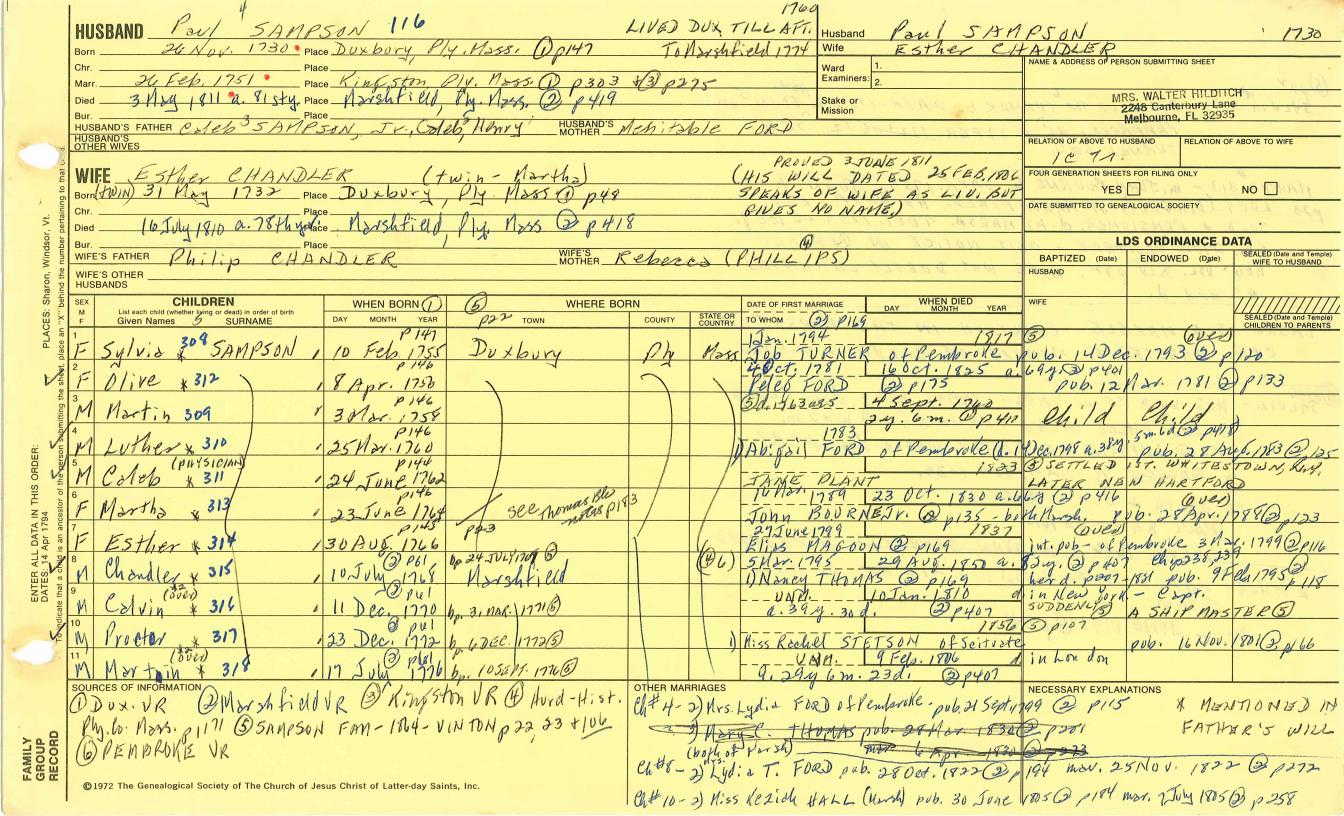 HUSBAND Paul 4 SAMPSON 116 LIVED DUX. TILL AFT. 1760
Born 26 Nov. 1730 Place Duxbury, Ply. Mass. ① p147 To Marshfield 1774
Chr. Place
Marr. 26 Feb. 1751 Place Kingston Ply. Mass. ① p303 & ③ p275
Died 3 May 1811 a. 81st y. Place Marshfield, Ply. Mass. ② p419
Bur. Place
HUSBAND'S FATHER Caleb 3 SAMPSON, Jr., Caleb, Henry HUSBAND'S MOTHER Mehitable FORD
HUSBAND'S OTHER WIVES
Husband Paul SAMPSON 1730
Wife Esther CHANDLER
Ward Examiners: 1.
2.
Stake or Mission
NAME & ADDRESS OF PERSON SUBMITTING SHEET
MRS. WALTER HILDITCH
2248 Canterbury Lane
Melbourne, FL 32935
RELATION OF ABOVE TO HUSBAND RELATION OF ABOVE TO WIFE
FOUR GENERATION SHEETS FOR FILING ONLY
YES NO
DATE SUBMITTED TO GENEALOGICAL SOCIETY
WIFE Esther CHANDLER (twin - Martha)
PROVED 3 JUNE 1811
(HIS WILL DATED 25 FEB. 1806
SPEAKS OF WIFE AS LIV. BUT
GIVES NO NAME.)
Born (twin) 31 May 1732 Place Duxbury, Ply. Mass ① p48
Chr. Place
Died 16 July 1810 a. 78th y. Place Marshfield, Ply. Mass ② p418
Bur. Place
WIFE'S FATHER Philip CHANDLER WIFE'S MOTHER Rebecca (PHILLIPS) ④
WIFE'S OTHER HUSBANDS
LDS ORDINANCE DATA
BAPTIZED (Date) ENDOWED (Date) SEALED (Date and Temple) WIFE TO HUSBAND
HUSBAND
WIFE
SEALED (Date and Temple) CHILDREN TO PARENTS
SEX M F CHILDREN WHEN BORN ① ⑤ p22 WHERE BORN DATE OF FIRST MARRIAGE WHEN DIED
List each child (whether living or dead) in order of birth
Given Names 5 SURNAME DAY MONTH YEAR TOWN COUNTY STATE OR COUNTRY TO WHOM ② p169 DAY MONTH YEAR
1 F Sylvia * 308 SAMPSON p147 10 Feb. 1755 Duxbury Ply Mass Jan. 1794 1817 ⑤ (over)
Job TURNER of Pembroke pub. 14 Dec. 1793 ② p120
2 F Olive * 312 p146 8 Apr. 1756 4 Oct. 1781 16 Oct. 1825 a. 69y. ② p401
Peleg FORD ② p175 pub. 12 Mar. 1781 ② p133
3 M Martin 309 p146 3 Mar. 1758 4 Sept. 1760 child Child
2y. 6m. ① p411
4 M Luther * 310 p146 25 Mar. 1760 1783
1) Abigail FORD of Pembroke pub. 28 Aug. 1783 ② p125
5 M Caleb (PHYSICIAN) * 311 p144 24 June 1762 1823 ⑤ SETTLED 1ST. WHITESTOWN, N.Y.
JAME PLANT LATER NEW HARTFORD
6 F Martha * 313 p146 23 June 1764 see Thomas notes p183 16 Mar. 1789 23 Oct. 1830 ② p416 (over)
John BOURNE Jr. ② p135 - both Marsh. pub. 28 Apr. 1788 ② p123
7 F Esther * 314 p145 30 Aug. 1766 p23 27 June 1799 1837 (over)
Elias MAGOON ② p169 int. pub - of Pembroke 3 Mar. 1799 ② p116
8 M Chandler * 315 ② p61 10 July 1768 bp. 24 JULY 1768 ⑤ Marshfield (④ 6) 5 Mar. 1795 29 Aug. 1850 ② p407
1) Nancy THOMAS ② p169 pub. 9 Feb 1795 ② p118
9 M Calvin (over) * 316 11 Dec. 1770 bp. 31 MAR. 1771 ⑤ UNM. 10 Jan. 1810 d. in New York - Capt.
a. 39y. 30d. ② p407 SUDDENLY ⑤ A SHIP MASTER ⑤
10 M Proctor * 317 23 Dec. 1772 b. 6 DEC. 1772 ⑤ 1856 ⑤ p107
1) Miss Rachel STETSON of Scituate pub. 16 Nov. 1801 ② p166
11 M Martin (over) * 318 ② p61 17 July 1776 bp. 10 SEPT. 1776 ⑤ UNM. 9 Feb. 1806 d. in London
a. 29y 6m. 23d. ② p407
SOURCES OF INFORMATION
① Dux. VR ② Marshfield VR ③ Kingston VR ④ Hurd - Hist.
Ply. Co. Mass. p1171 ⑤ SAMPSON FAM - 1864 - VINTON p22, 23 + 106
⑥ PEMBROKE VR
OTHER MARRIAGES
Ch #4 - 2) Mrs. Lydia FORD of Pembroke - pub. 21 Sept 1799 ② p115
3) Mary C. THOMAS pub. 28 Mar. 1830 ② p201
(both of Marsh) mar 6 Apr 1830 ② p223
Ch #8 - 2) Lydia T. FORD pub. 28 Oct. 1822 ② p194 mar. 25 Nov. 1822 ② p272
Ch #10 - 2) Miss Keziah HALL (Marsh) pub. 30 June 1805 ② p184 mar. 7 July 1805 ② p258
NECESSARY EXPLANATIONS
* MENTIONED IN
FATHER'S WILL
©1972 The Genealogical Society of The Church of Jesus Christ of Latter-day Saints, Inc.
FAMILY GROUP RECORD
ENTER ALL DATA IN THIS ORDER:
DATES: 14 Apr 1794
PLACES: Sharon, Windsor, Vt.